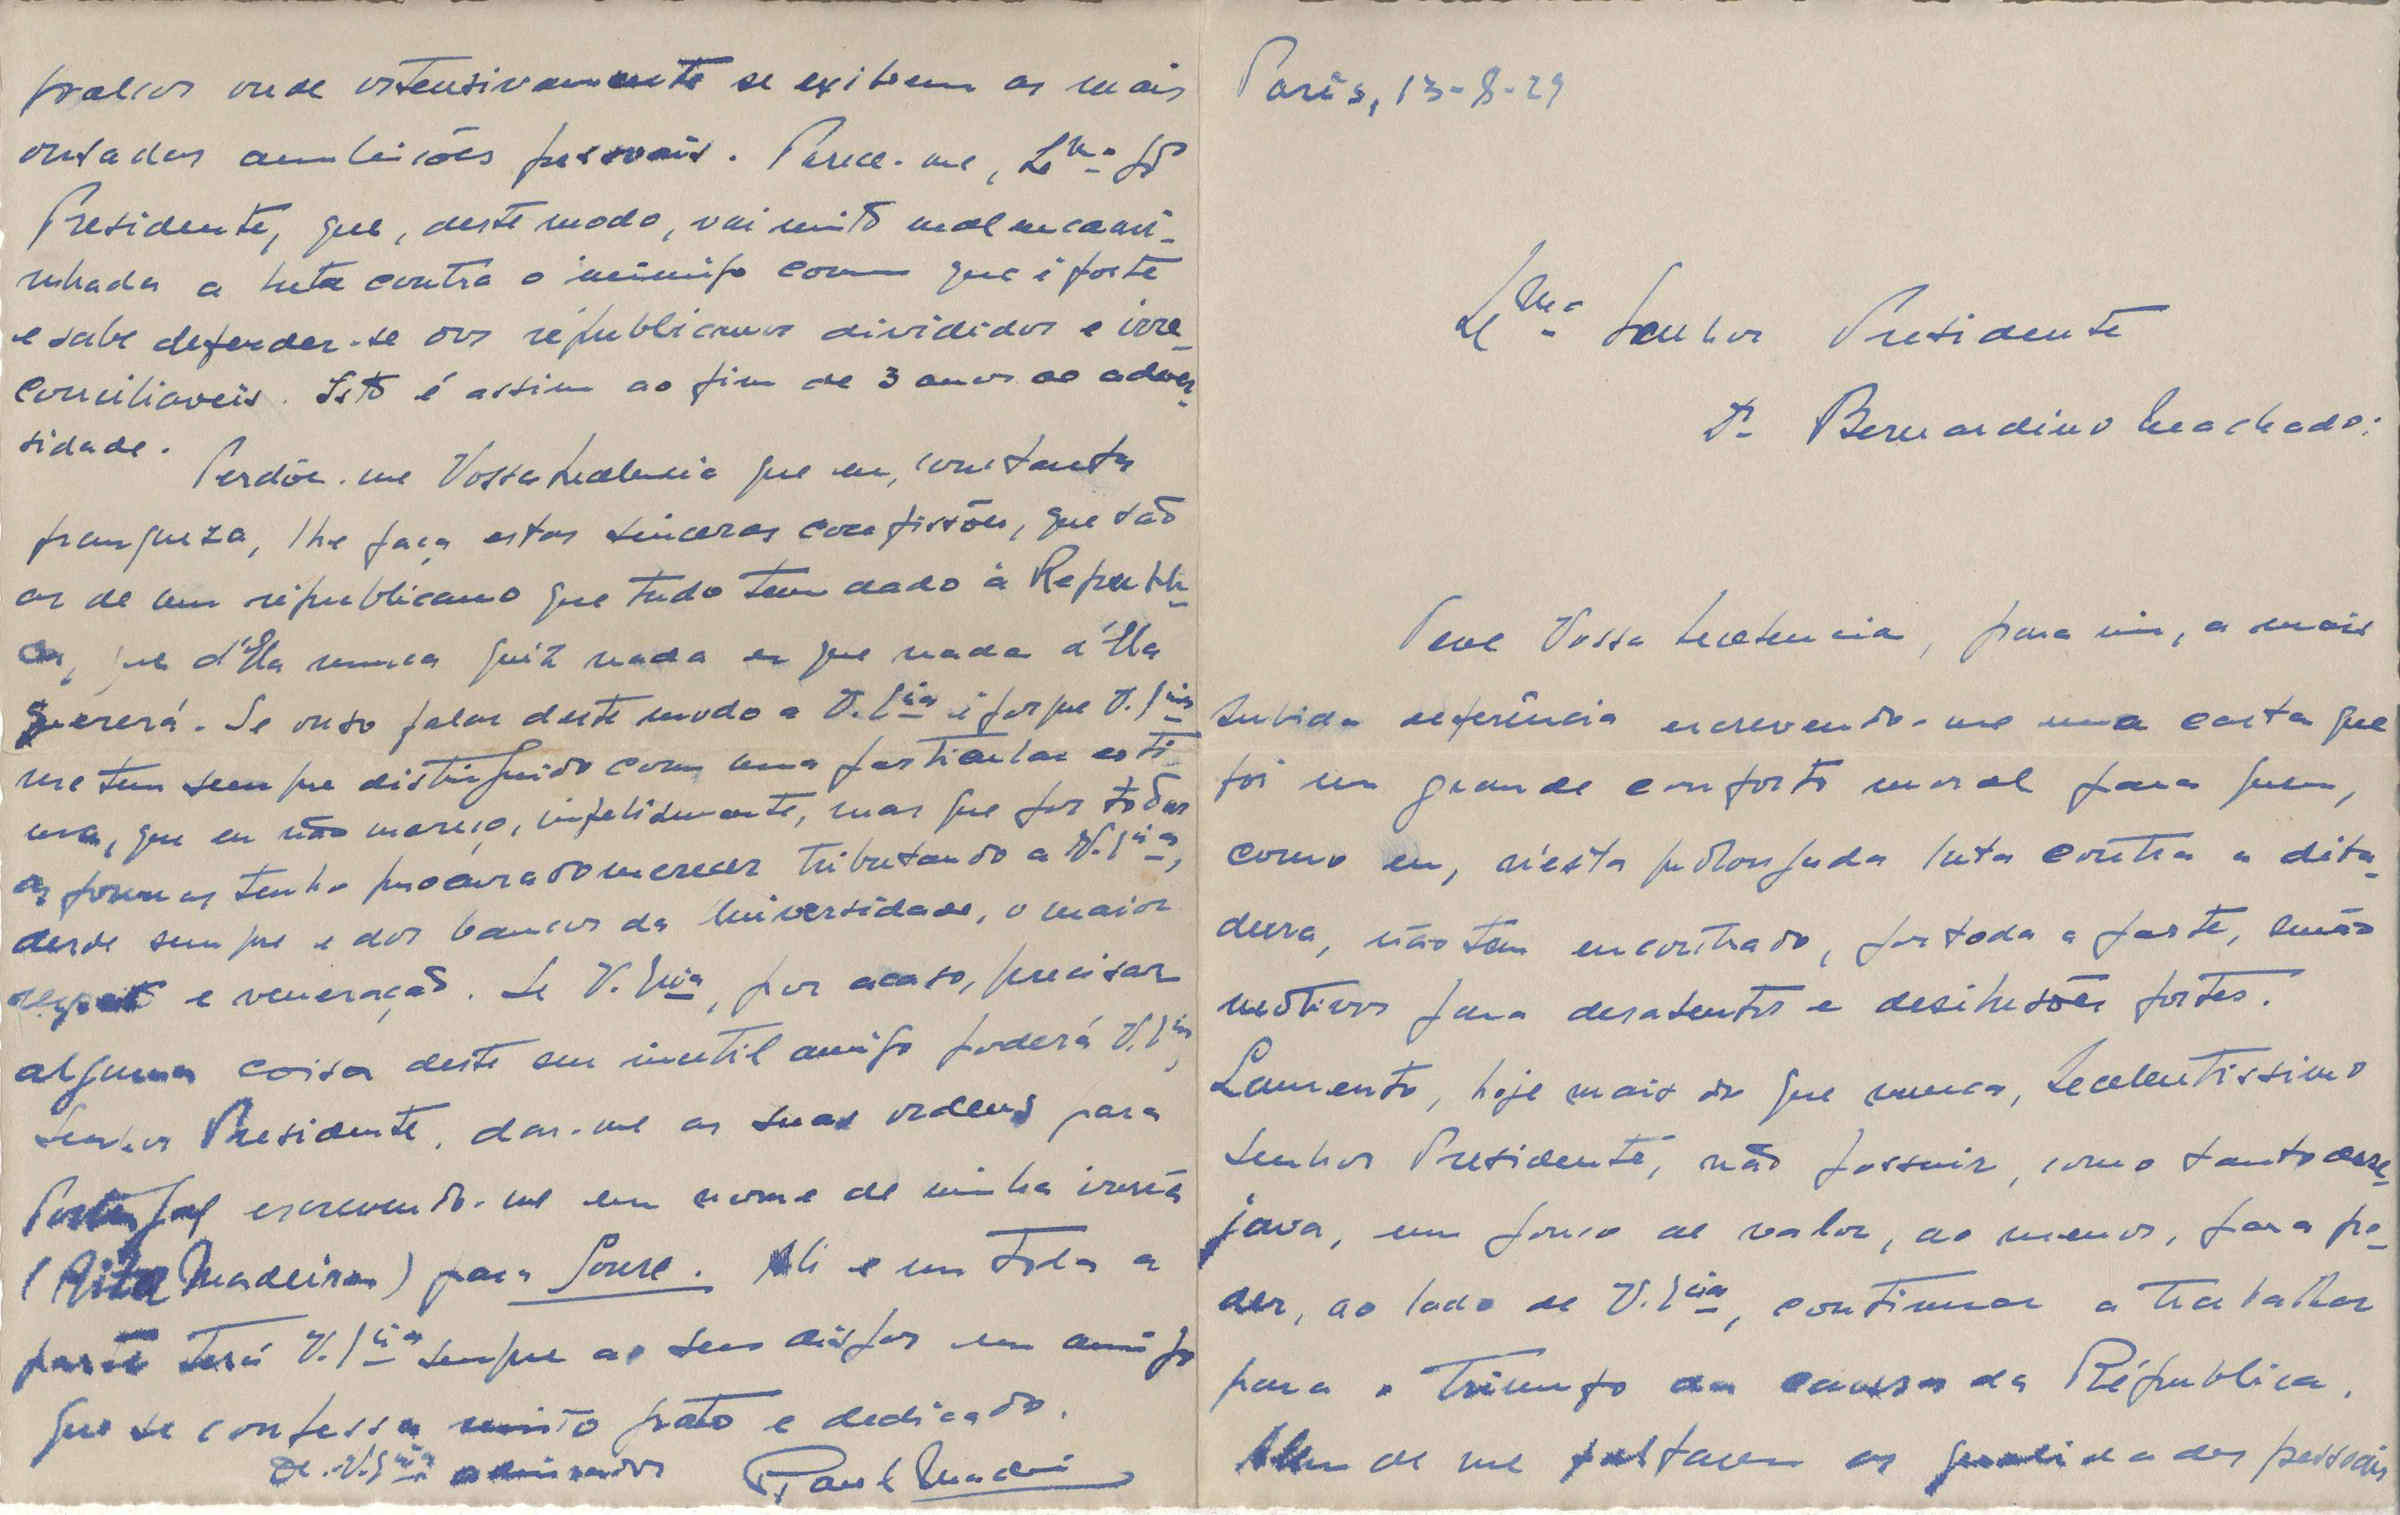 Paris, 13-8-29
Ex.mo Senhor Presidente
Dr. Bernardino Machado:
Teve Vossa Excelencia, para mim, a mais
subida deferência escrevendo-me uma carta que
foi um grande conforto moral para quem,
como eu, n'esta prolongada luta contra a dita-
dura, não tem encontrado, por toda a parte, senão
motivos para desalentos e desilusões fortes.
Lamento, hoje mais do que nunca, Excelentissimo
Senhor Presidente, não possuir, como tanto dese-
java, um pouco de valor, ao menos, para po-
der, ao lado de V. Ex.cia, continuar a trabalhar
para o triunfo da causa da Républica.
Alem de me faltarem as qualidades pessoais
palcos onde ostensivamente se exibem as mais
ousadas ambições pessoais. Parece-me, Ex.mo Sr.
Presidente, que, deste modo, vai muito mal encami-
nhada a luta contra o inimigo comum que é forte
e sabe defender-se dos républicanos divididos e irre-
conciliaveis. Isto é assim ao fim de 3 anos de adver-
sidade.
Perdôe-me Vossa Excelencia que eu, com tanta
franqueza, lhe faça estas sinceras confissões, que são
as de um républicano que tudo tem dado à Républi-
ca, que d'Ela nunca quiz nada e que nada d'Ela
quererá. Se ouso falar deste modo a V. Ex.cia é porque V. Ex.cia
me tem sempre distinguido com uma particular esti-
ma, que eu não mereço, infelizmente, mas que por todas
as formas tenho procurado merecer tributando a V. Ex.cia,
desde sempre e dos bancos da Universidade, o maior
respeito e veneração. Se V. Ex.cia, por acaso, precisar
alguma coisa deste seu inutil amigo poderá V. Ex.cia,
Senhor Presidente, dar-me as suas ordens para
Portugal escrevendo-me em nome de minha irmã
(Rita Madeira) para Soure. Ali e em toda a
parte terá V. Ex.cia sempre ao seu dispor um amigo
que se confessa muito grato e dedicado.
De V. Ex.cia admirador Raul Madeira